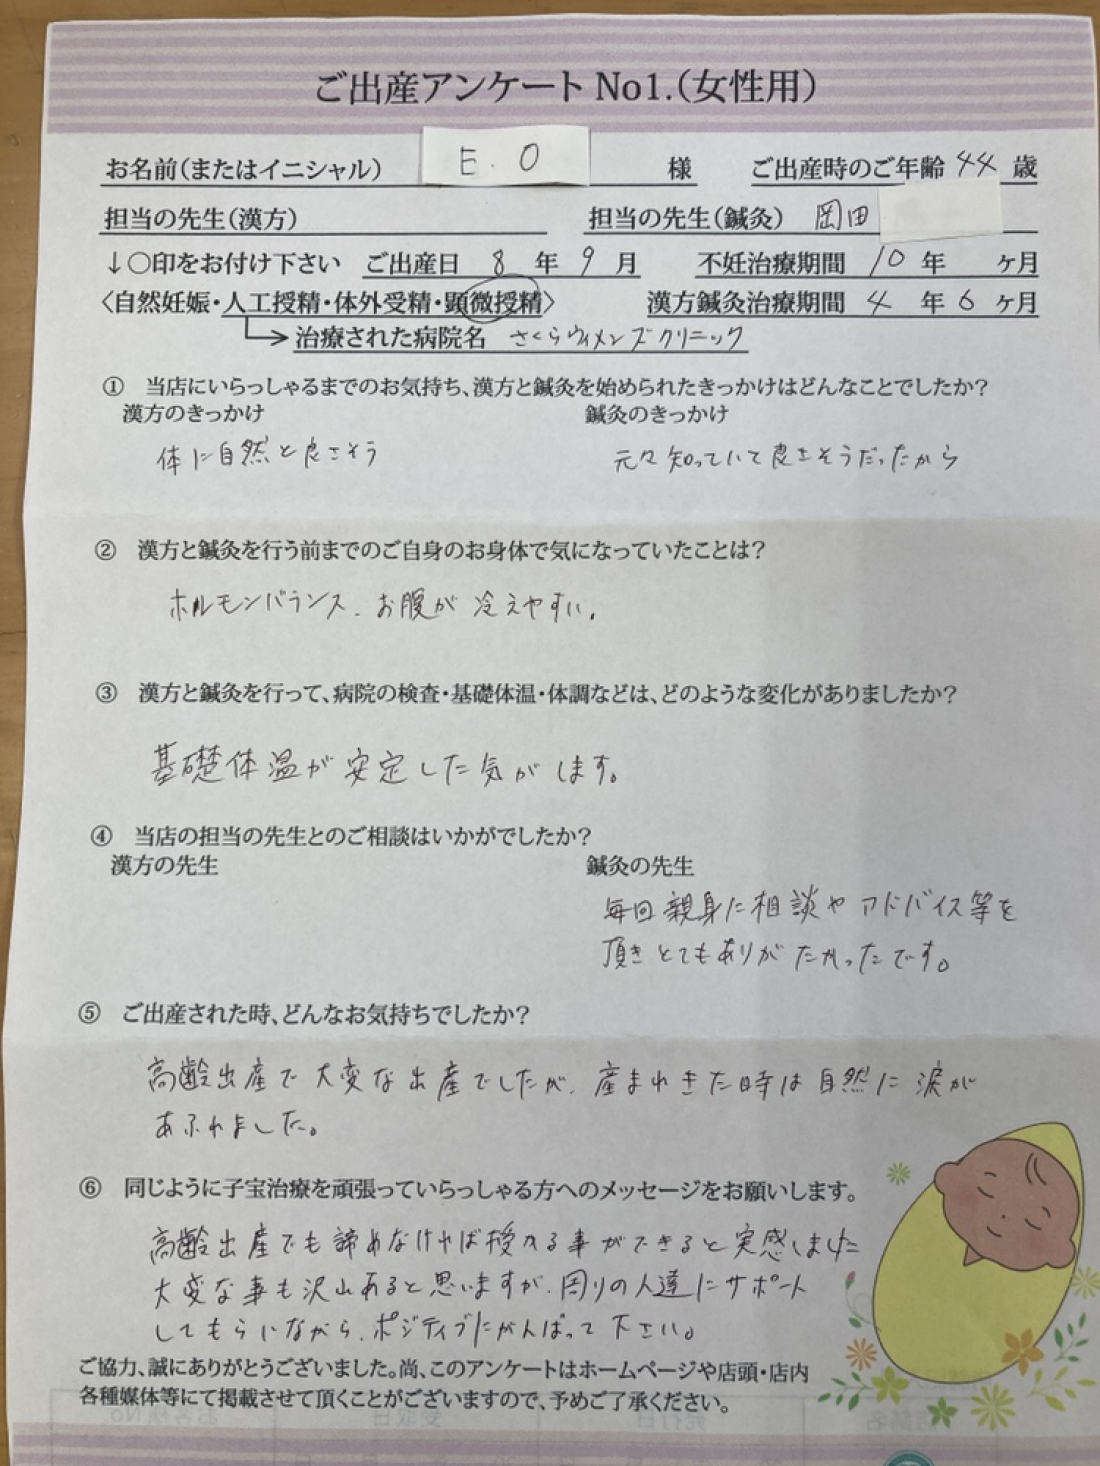 ご出産アンケート No1.(女性用)
お名前(またはイニシャル) E.O 様 ご出産時のご年齢 44 歳
担当の先生(漢方) 担当の先生(鍼灸) 岡田
↓〇印をお付け下さい ご出産日 8 年 9 月 不妊治療期間 10 年 ヶ月
〈自然妊娠・人工授精・体外受精・顕微授精〉 漢方鍼灸治療期間 4 年 6 ヶ月
治療された病院名 さくらウィメンズクリニック
① 当店にいらっしゃるまでのお気持ち、漢方と鍼灸を始められたきっかけはどんなことでしたか?
漢方のきっかけ 鍼灸のきっかけ
体に自然と良さそう 元々知っていて良さそうだったから
② 漢方と鍼灸を行う前までのご自身のお身体で気になっていたことは?
ホルモンバランス、お腹が冷えやすい。
③ 漢方と鍼灸を行って、病院の検査・基礎体温・体調などは、どのような変化がありましたか?
基礎体温が安定した気がします。
④ 当店の担当の先生とのご相談はいかがでしたか?
漢方の先生 鍼灸の先生
毎回親身に相談やアドバイス等を
頂きとてもありがたかったです。
⑤ ご出産された時、どんなお気持ちでしたか?
高齢出産で大変な出産でしたが、産まれきた時は自然に涙が
あふれました。
⑥ 同じように子宝治療を頑張っていらっしゃる方へのメッセージをお願いします。
高齢出産でも諦めなければ授かる事ができると実感しました
大変な事も沢山あると思いますが、周りの人達にサポート
してもらいながら、ポジティブにがんばって下さい。
ご協力、誠にありがとうございました。尚、このアンケートはホームページや店頭・店内
各種媒体等にて掲載させて頂くことがございますので、予めご了承ください。